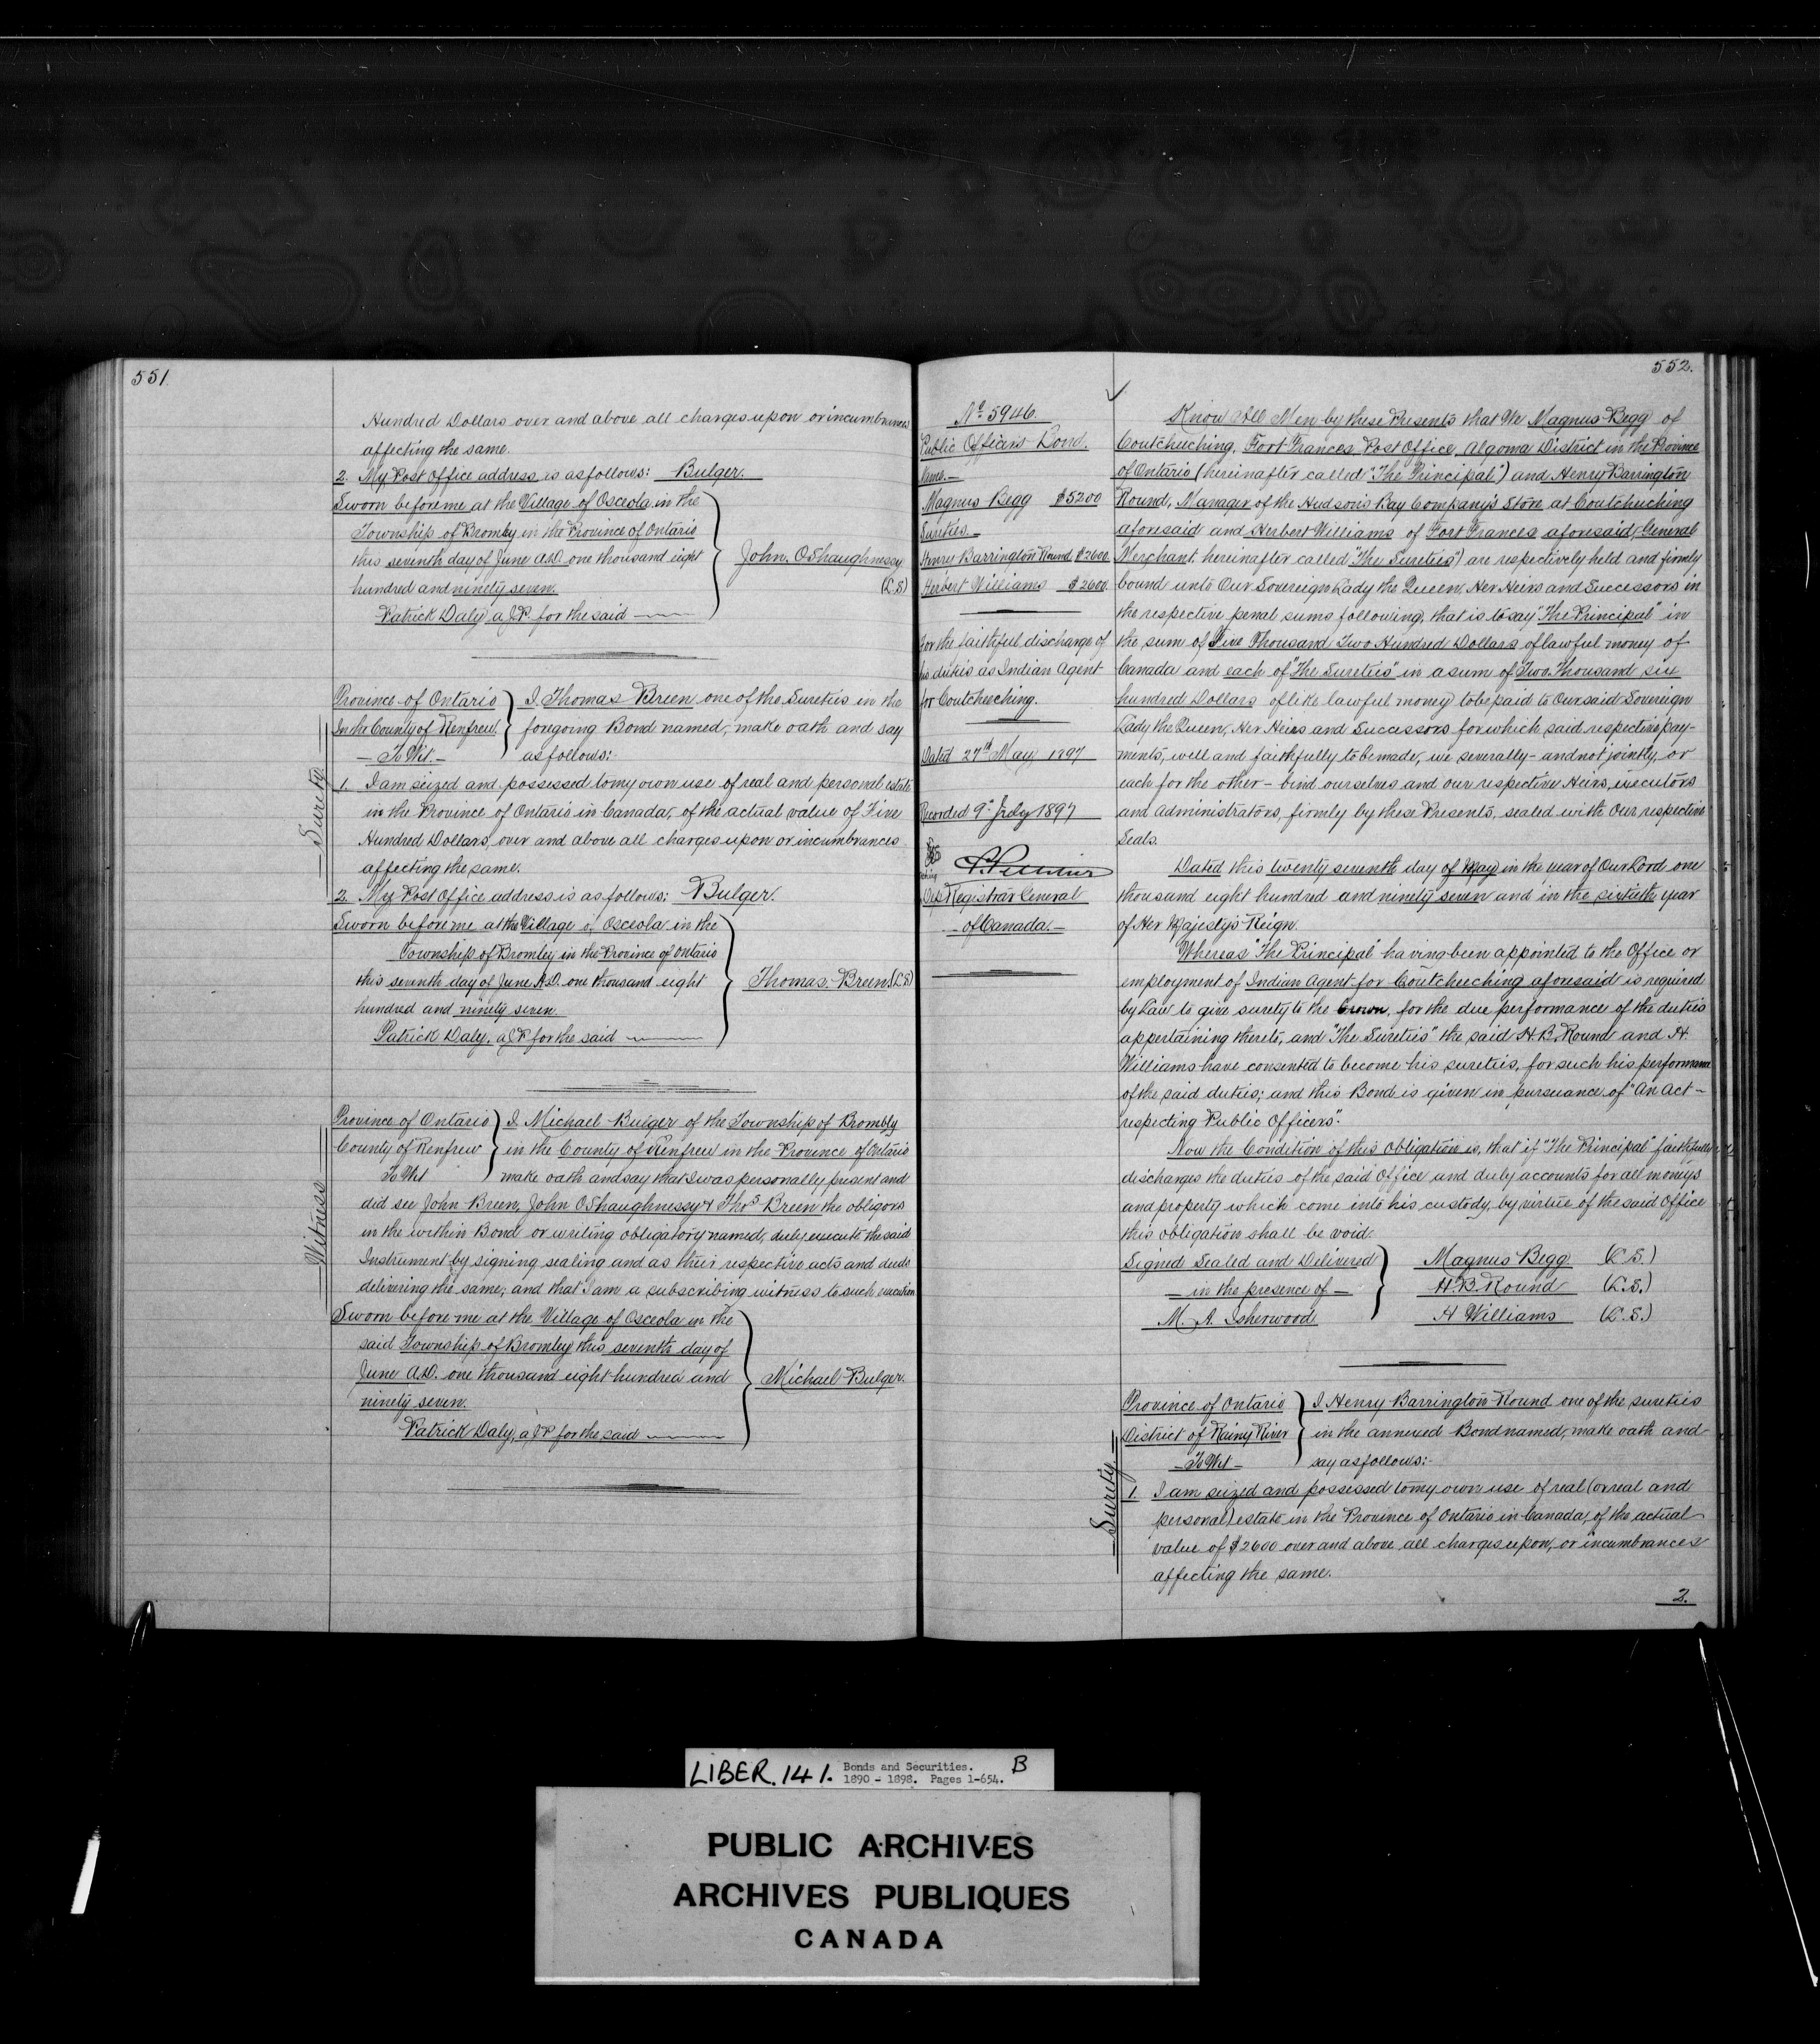 551.
Hundred Dollars over and above all charges upon or incumbrances
affecting the same.
2. My Post Office address is as follows: Bulger.
Sworn before me at the Village of Osceola in the
Township of Bromley in the Province of Ontario
this seventh day of June A.D. one thousand eight
hundred and ninety seven.
Patrick Daly, a J.P. for the said
John. O'Shaughnessy
(L.S)
Surety
Province of Ontario
In the County of Renfrew.
- To Wit. -
I Thomas Breen one of the Sureties in the
foregoing Bond named, make oath and say
as follows:
1. I am seized and possessed to my own use of real and personal estate
in the Province of Ontario in Canada, of the actual value of Five
Hundred Dollars, over and above all charges upon or incumbrances
affecting the same.
2. My Post Office address is as follows: Bulger.
Sworn before me at the Village of Osceola in the
Township of Bromley in the Province of Ontario
this seventh day of June A.D. one thousand eight
hundred and ninety seven.
Patrick Daly, a J.P. for the said
Thomas. Breen (L.S)
Witness
Province of Ontario
County of Renfrew
To Wit
I Michael Bulger of the Township of Brombly
in the County of Renfrew in the Province of Ontario
make oath and say that I was personally present and
did see John Breen, John O'Shaughnessy & Thos Breen the obligors
in the within Bond or writing obligatory named, duly execute the said
Instrument by signing sealing and as their respective acts and deeds
delivering the same; and that I am a subscribing witness to such execution
Sworn before me at the Village of Osceola in the
said Township of Bromley this seventh day of
June A.D. one thousand eight hundred and
ninety seven.
Patrick Daly, a J.P. for the said
Michael Bulger.
552.
No 5946.
Public Officers Bond.
Name.-
Magnus Begg $5200
Sureties.-
Henry Barrington Round $2600
Herbert Williams $2600.
for the faithful discharge of
his duties as Indian Agent
for Coutcheeching.
Dated 27th May 1897
Recorded 9th July 1897
Dep Registrar General
- of Canada. -
Know All Men by these Presents that We Magnus Begg of
Coutcheeching, Fort Frances Post Office, Algoma District in the Province
of Ontario (hereinafter called "The Principal") and Henry Barrington
Round, Manager of the Hudson's Bay Company's Store at Coutcheeching
aforesaid and Herbert Williams of Fort Frances aforesaid, General
Merchant, hereinafter called "The Sureties") are respectively held and firmly
bound unto Our Sovereign Lady the Queen, Her Heirs and Successors in
the respective penal sums following, that is to say "The Principal" in
the sum of Five Thousand Two Hundred Dollars of lawful money of
Canada and each of "The Sureties" in a sum of Two Thousand six
hundred Dollars of like lawful money to be paid to Our said Sovereign
Lady the Queen, Her Heirs and Successors for which said respective pay-
ments, well and faithfully to be made, we severally - and not jointly, or
each for the other - bind ourselves and our respective Heirs, executors
and administrators, firmly by these Presents, sealed with Our respective
Seals.
Dated this twenty seventh day of May in the year of Our Lord one
thousand eight hundred and ninety seven and in the sixtieth year
of Her Majesty's Reign.
Whereas "The Principal" having been appointed to the Office or
employment of Indian Agent for Coutcheeching aforesaid is required
by Law to give surety to the Crown, for the due performance of the duties
appertaining thereto, and "The Sureties" the said H. B. Round and H.
Williams have consented to become his sureties, for such his performance
of the said duties; and this Bond is given in pursuance of "An Act -
respecting Public Officers".
Now the Condition of this obligation is, that if "The Principal" faithfully
discharges the duties of the said Office and duly accounts for all moneys
and property which come into his custody, by virtue of the said Office
this obligation shall be void.
Signed Sealed and Delivered
- in the presence of -
M. A. Isherwood
Magnus Begg (L.S.)
H. B. Round (L.S.)
H Williams (L.S.)
Surety
Province of Ontario
District of Rainy River
- To Wit -
I Henry Barrington Round one of the sureties
in the annexed Bond named, make oath and
say as follows:-
1. I am seized and possessed to my own use of real (or real and
personal) estate in the Province of Ontario in Canada, of the actual
value of $2600 over and above all charges upon, or incumbrances
affecting the same.
2.
LIBER. 141. Bonds and Securities. B
1890 - 1898. Pages 1-654.
PUBLIC ARCHIVES
ARCHIVES PUBLIQUES
CANADA